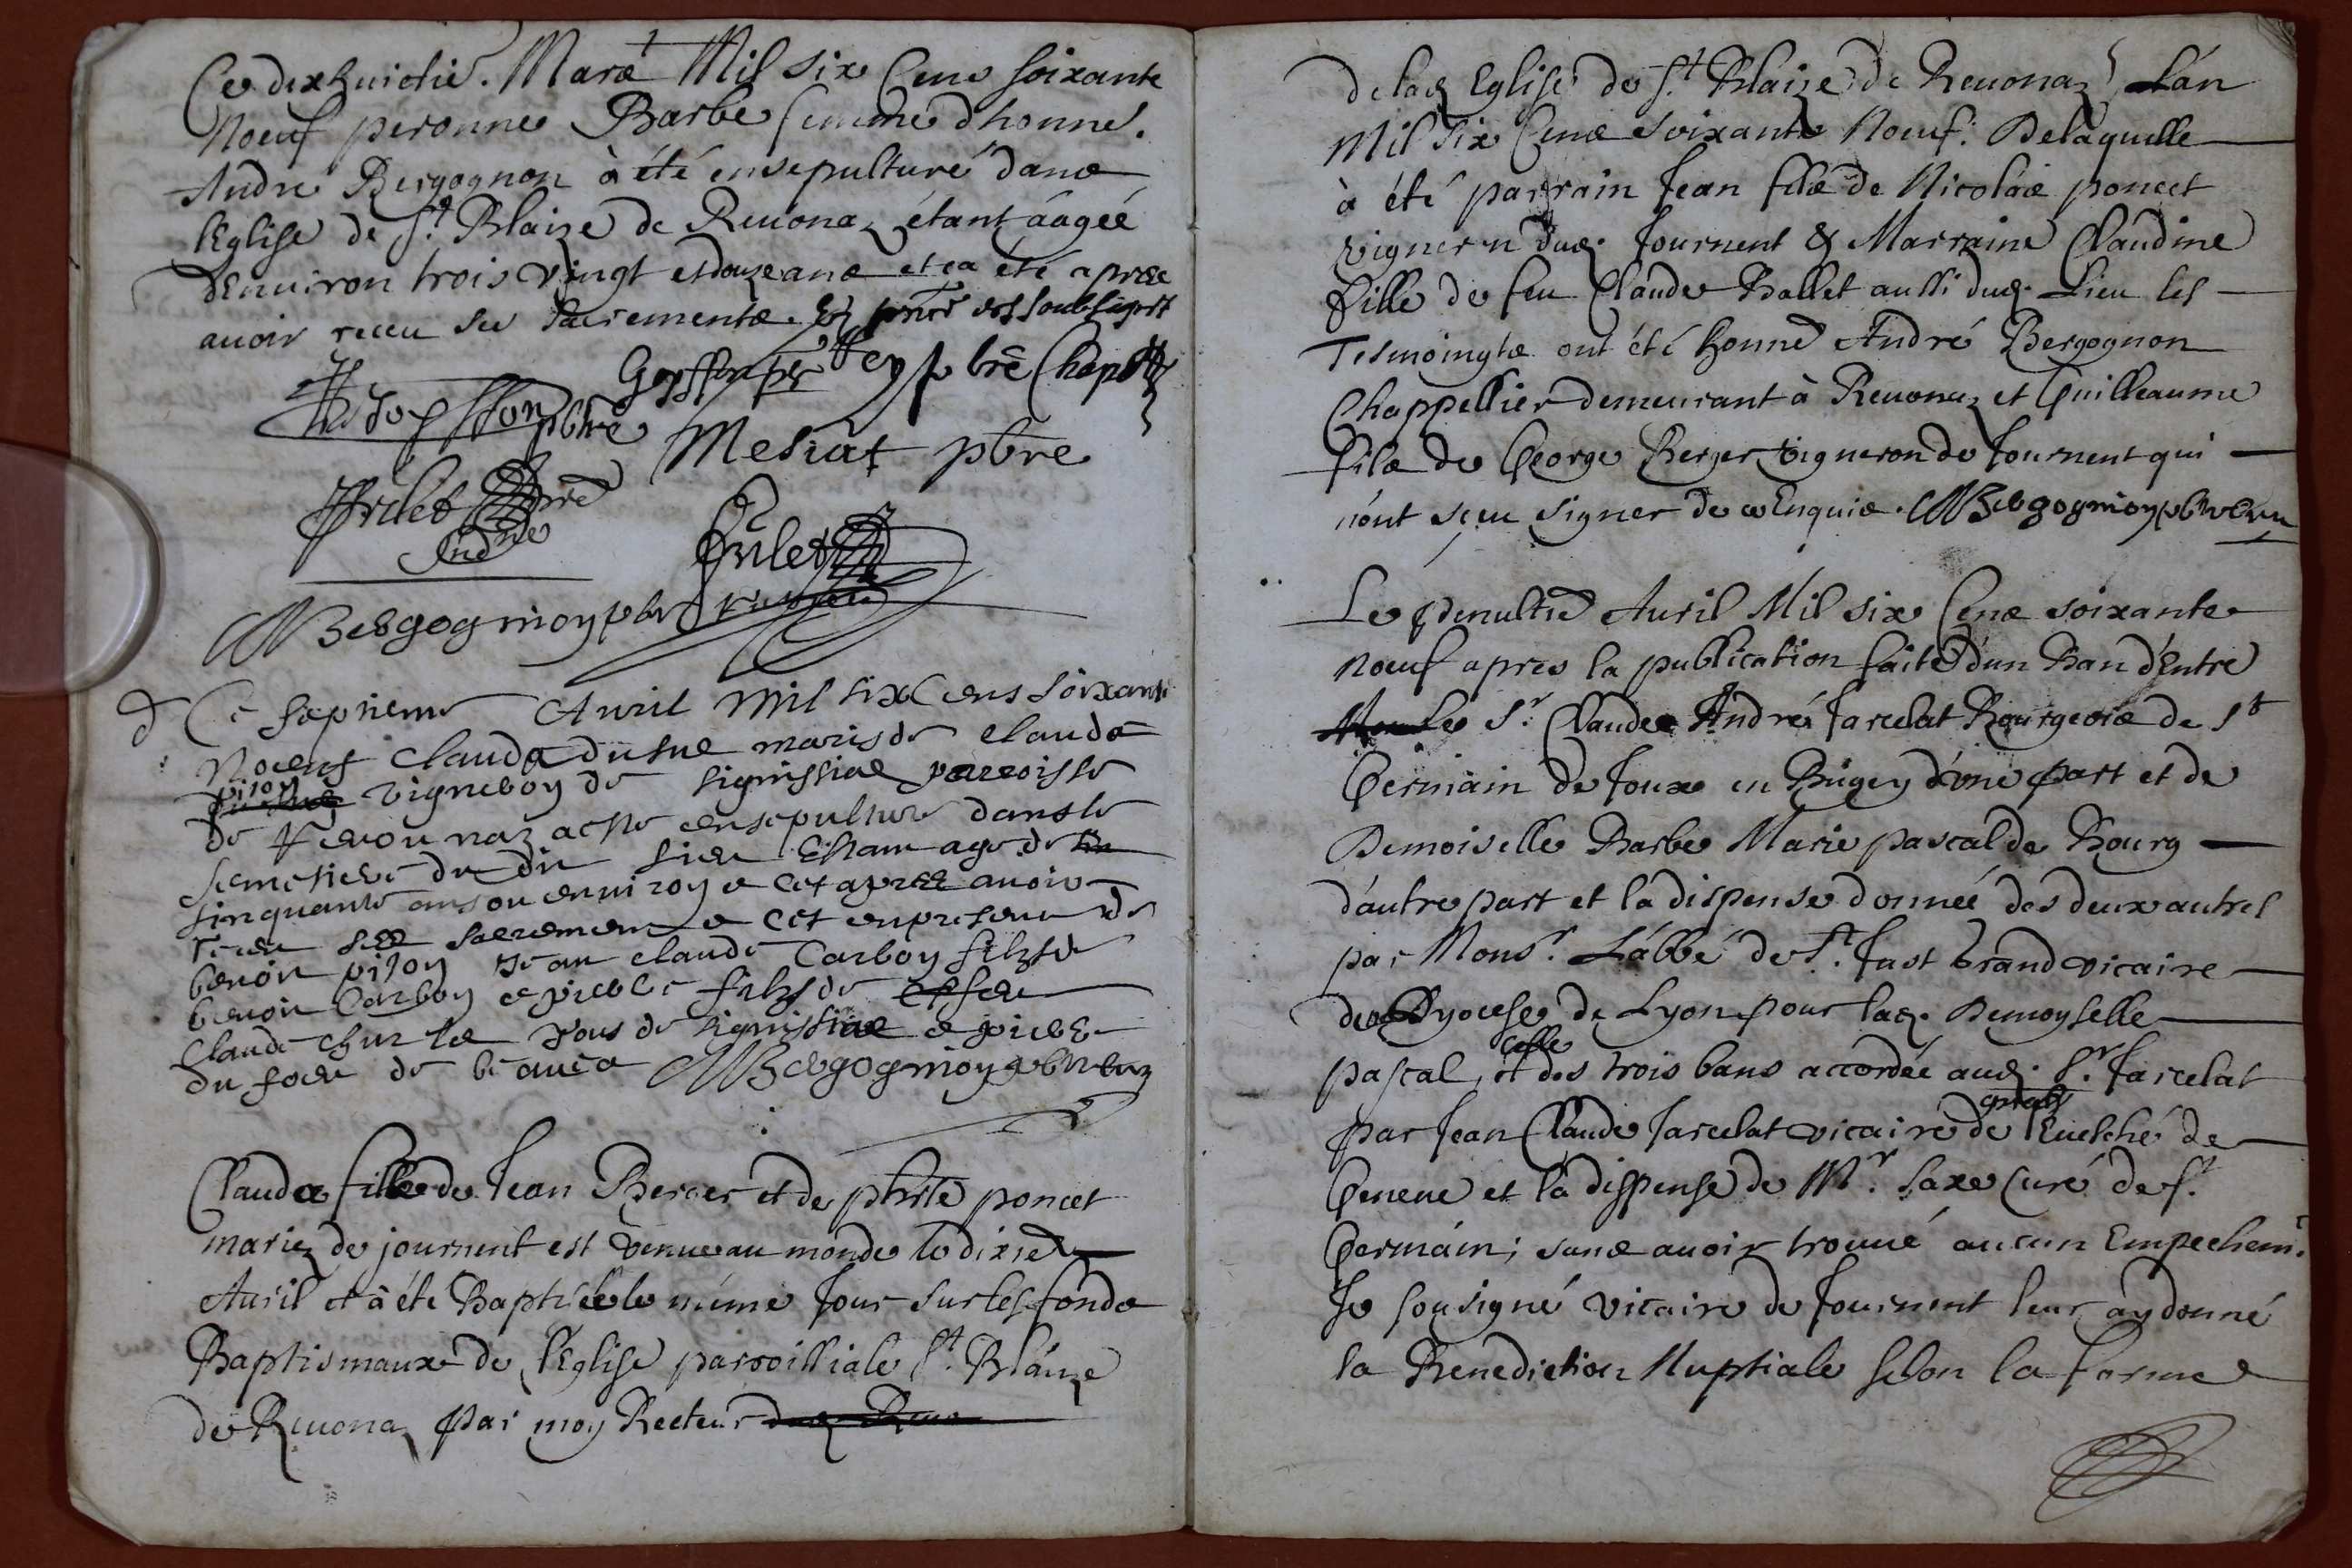 Ce dixhuictie. Mars Mil six Cens soixante
Noeuf peronne Barbe femme d'honne.
André Bergognon à été ensepulturé dans
l'Eglise de St. Blaize de Reuonaz étant áagéé
d'Enuiron trois vingt et douze ans et ca été apres
auoir receu ses Sacrements. Les soubsignés
pbre
Mesiat pbre
Brulet
Brulet
Bergognion pbr
Ce septieme Auril mil six Cens soixante
Noeuf Claude mari de Claudâ
piton vigneron de signissiat parroisse
de Reuonnaz a esté ensepulture dans le
semetiere du dit lieu Estant age de
sinquante ans ou enuiron e cet apres auoir
receu ses sacremens e cet en presence de
benoit piton Jean Claude Carbon filz de
benoit Carbon e pierre filz de feu
Claude tous de signissiat e
du Bergognion pbr cur
Claude fille de Jean Berger et de pbrte poncet
mariez de journent est venue au monde le dixie
Auril et à été Baptisée le méme Jour sur les fonds
Baptismaux de l'Eglise parroissiale St. Blaize
de Reuonaz par moy Recteur
de lad. Eglise de St. Blaize de Reuonaz L'án
Mil six Cens soixante Noeuf. De laquelle
à été parrain Jean fils de Nicolas poncet
vigneron dud. Journent & Marraine Claudine
fille de feu Claude Ballet aussi dud. Lieu les
Tesmoingts ont été honne André Bergognon
Chappellier demeurant à Reuonaz et Guilleaume
fils de George Berger vigneron de Journent qui
n'ont sçeu signer de ce Enquis. Bergognion pbr cur
Le penultie Auril Mil six Cens soixante
Noeuf apres la publication faite d'un Ban d'Entre
Le Sr. Claude André Jarcelat Bourgeois de St
Germain de Joux en Bugey d'une part et de
Demoiselle Barbe Marie pascal de Bourg
d'autre part et la dispense donnée des deux autres
par Monsr. L'abbé de St. Just Grand vicaire
de Dyocese de Lyon pour lad. Demoyselle
pascal, et celle des trois bans accordée aud. Sr. Jarcelat
par Jean Claude Jarcelat vicaire de l'Euesché de
Geneue et la dispense de Mr. Saxe Curé de St.
Germáin; sans auoir trouué aucun Empechemt.
Je sousigné vicaire de Journent leur ay donné
la Benediction Nuptiale selon la forme